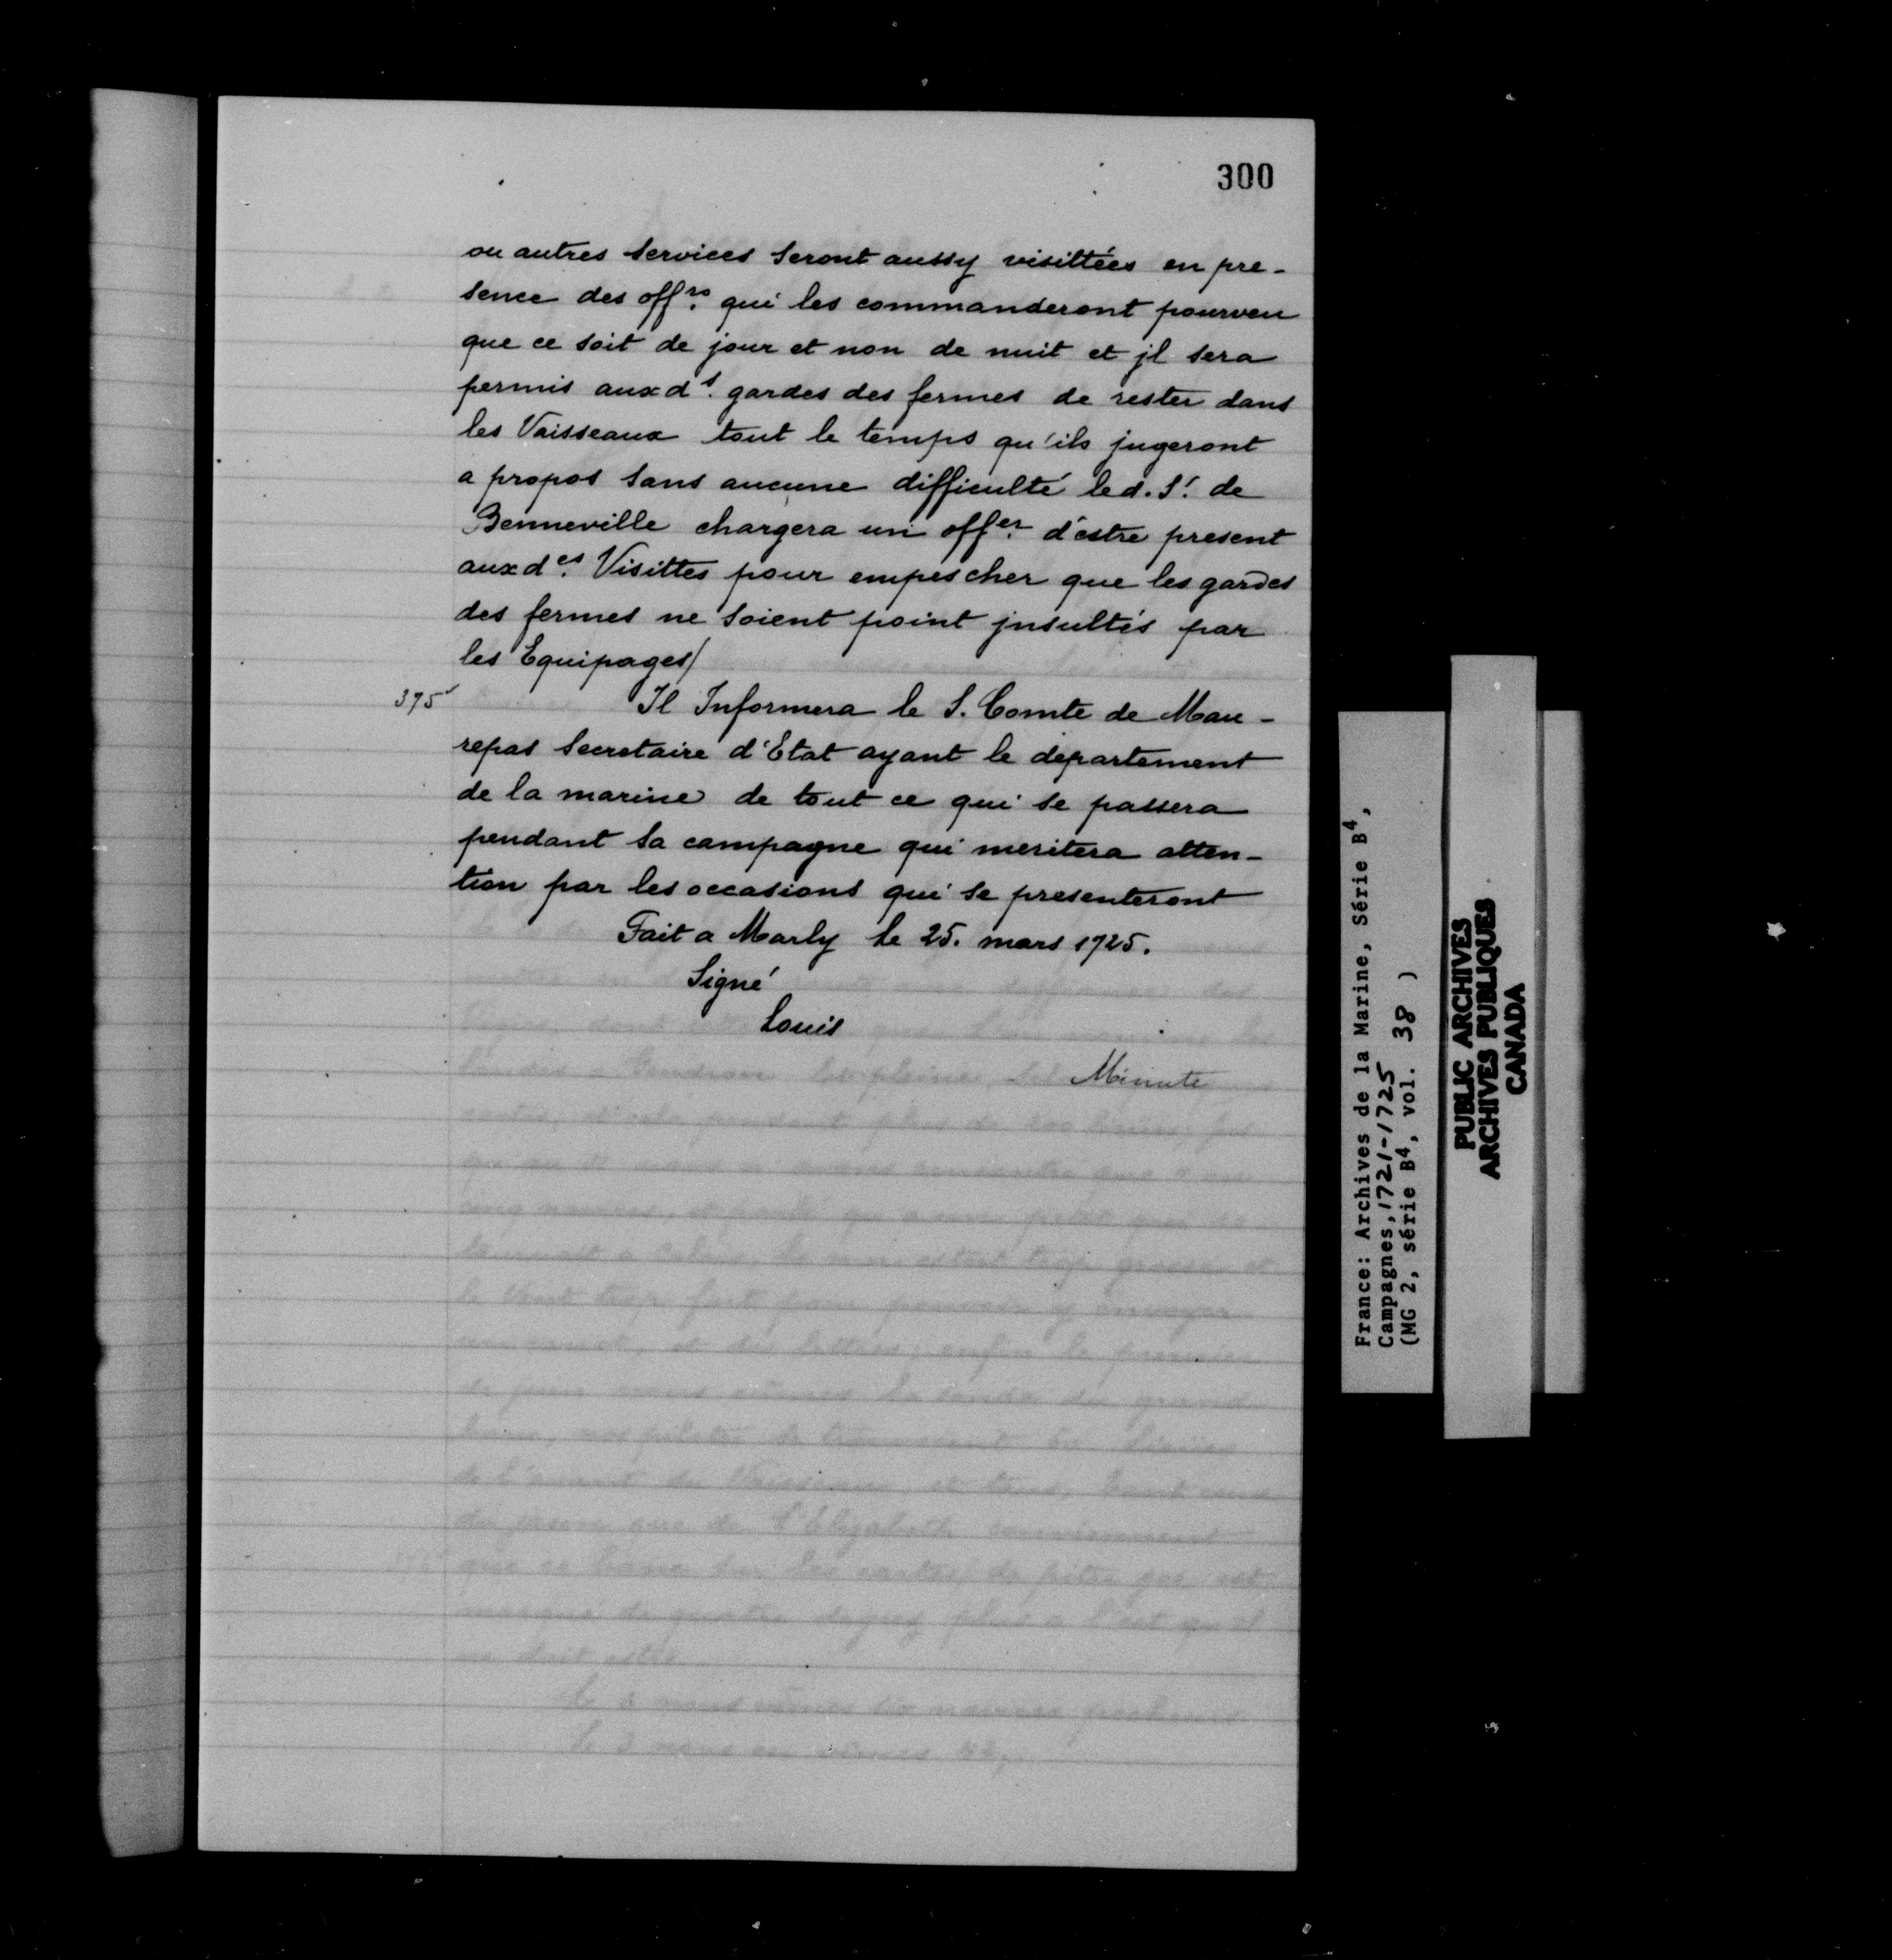 300
ou autres services seront aussy visittées en pre-
sence des offrs. qui les commanderont pourveu
que ce soit de jour et non de nuit et jl sera
permis aux ds. gardes des fermes de rester dans
les Vaisseaux tout le temps qu'ils jugeront
a propos sans aucune difficulté led. Sr. de
Benneville chargera un offer. d'estre present
aux des. Visittes pour empescher que les gardes
des fermes ne soient point jnsultés par
les Equipages/
375
Il Informera le S. Comte de Mau-
repas Secretaire d'Etat ayant le departement
de la marine de tout ce qui se passera
pendant sa campagne qui meritera atten-
tion par les occasions qui se presenteront
Fait a Marly le 25. mars 1725.
Signé
Louis
Minute
France: Archives de la Marine, Série B4,
Campagnes, 1721-1725
(MG 2, série B4, vol. 38 )
PUBLIC ARCHIVES
ARCHIVES PUBLIQUES
CANADA